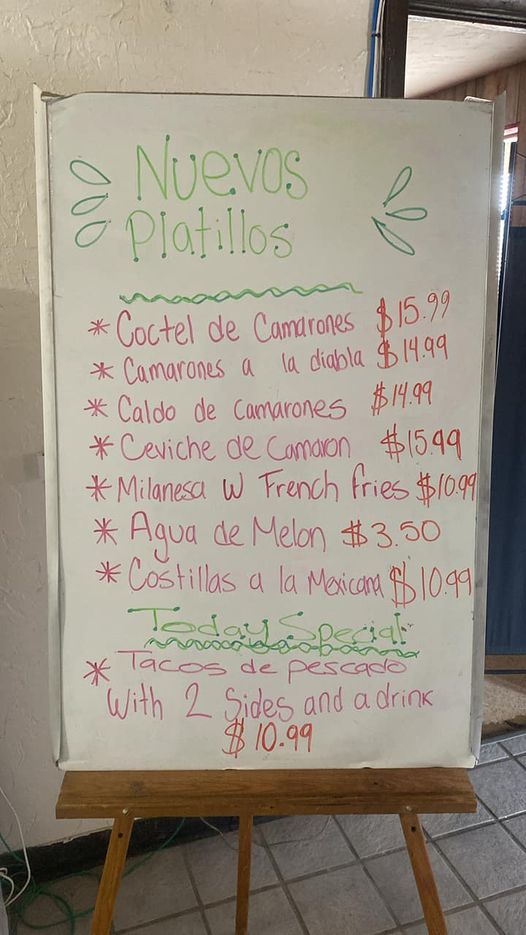 Nuevos
Platillos
* Coctel de Camarones $15.99
* Camarones a la diabla $14.99
* Caldo de Camarones $14.99
* Ceviche de Camaron $15.99
* Milanesa W French fries $10.99
* Agua de Melon $3.50
* Costillas a la Mexicana $10.99
Today Special:
* Tacos de pescado
With 2 Sides and a drink
$10.99